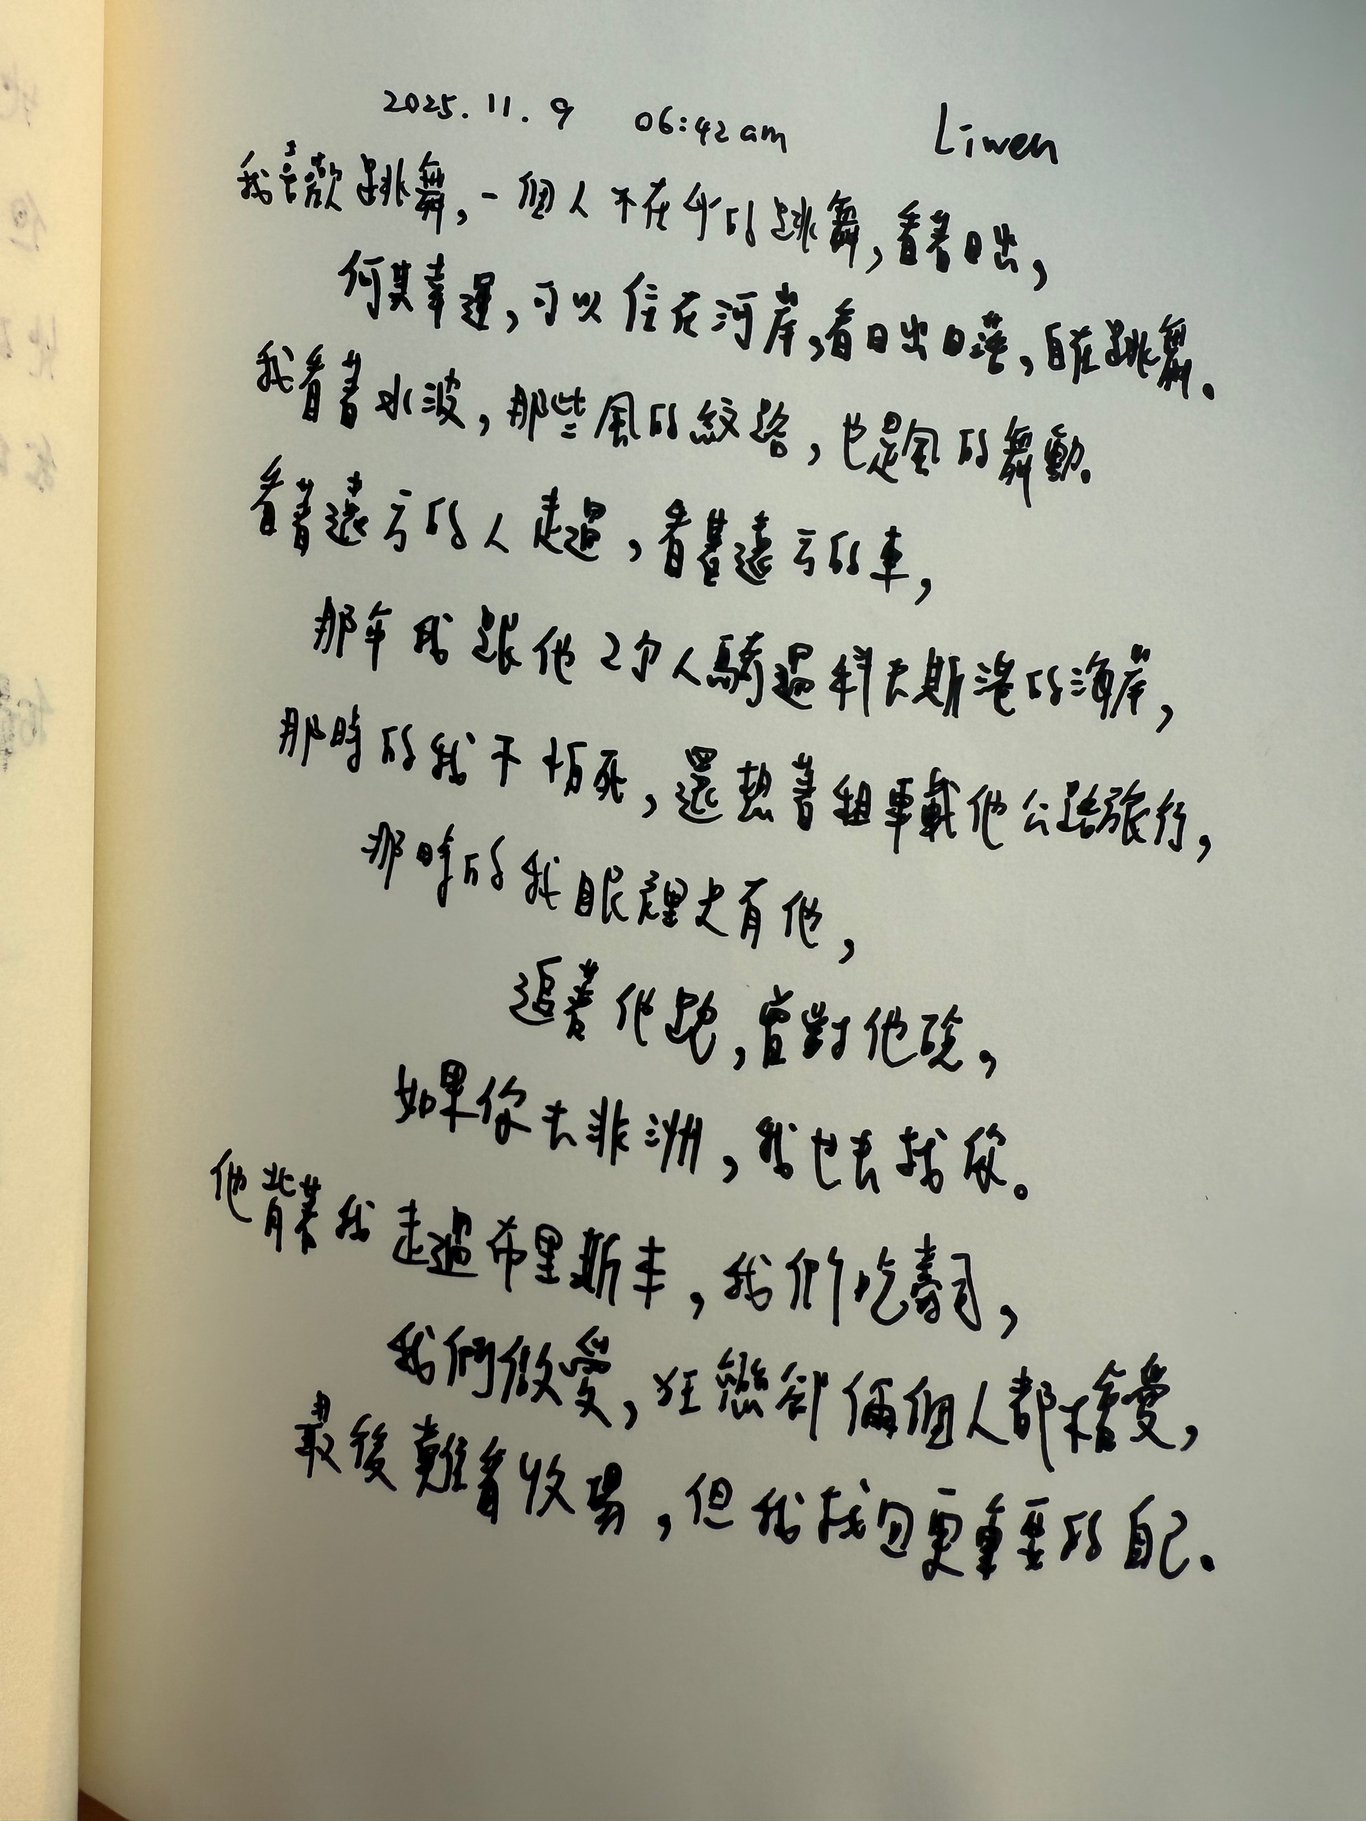 2025.11.9 06:42am Liwen
我喜歡跳舞，一個人不在乎的跳舞，看著日出，
何其幸運，可以住在河岸，看日出日落，自在跳舞。
我看著水波，那些風的紋路，也是風的舞動。
看著遠方的人走過，看著遠方的車，
那年我跟他2個人騎過科夫斯港的海岸，
那時的我不怕死，還想著租車載他公路旅行，
那時的我眼裡只有他，
追著他跑，曾對他說，
如果你去非洲，我也去找你。
他背著我走過布里斯本，我們吃壽司，
我們做愛，狂戀卻倆個人都擅愛，
最後難看收場，但我找回更重要的自己。